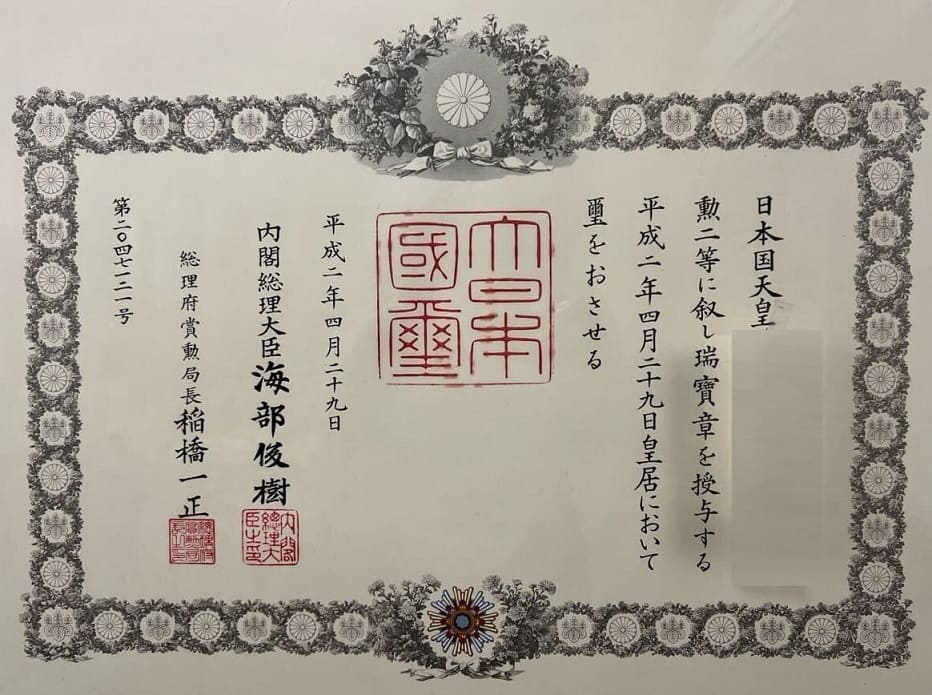 日本国天皇
勲二等に叙し瑞寶章を授与する
平成二年四月二十九日皇居において
璽をおさせる
大日本
國璽
平成二年四月二十九日
内閣総理大臣海部俊樹
内閣
総理大
臣之印
総理府賞勲局長稲橋一正
第二〇四七二一号